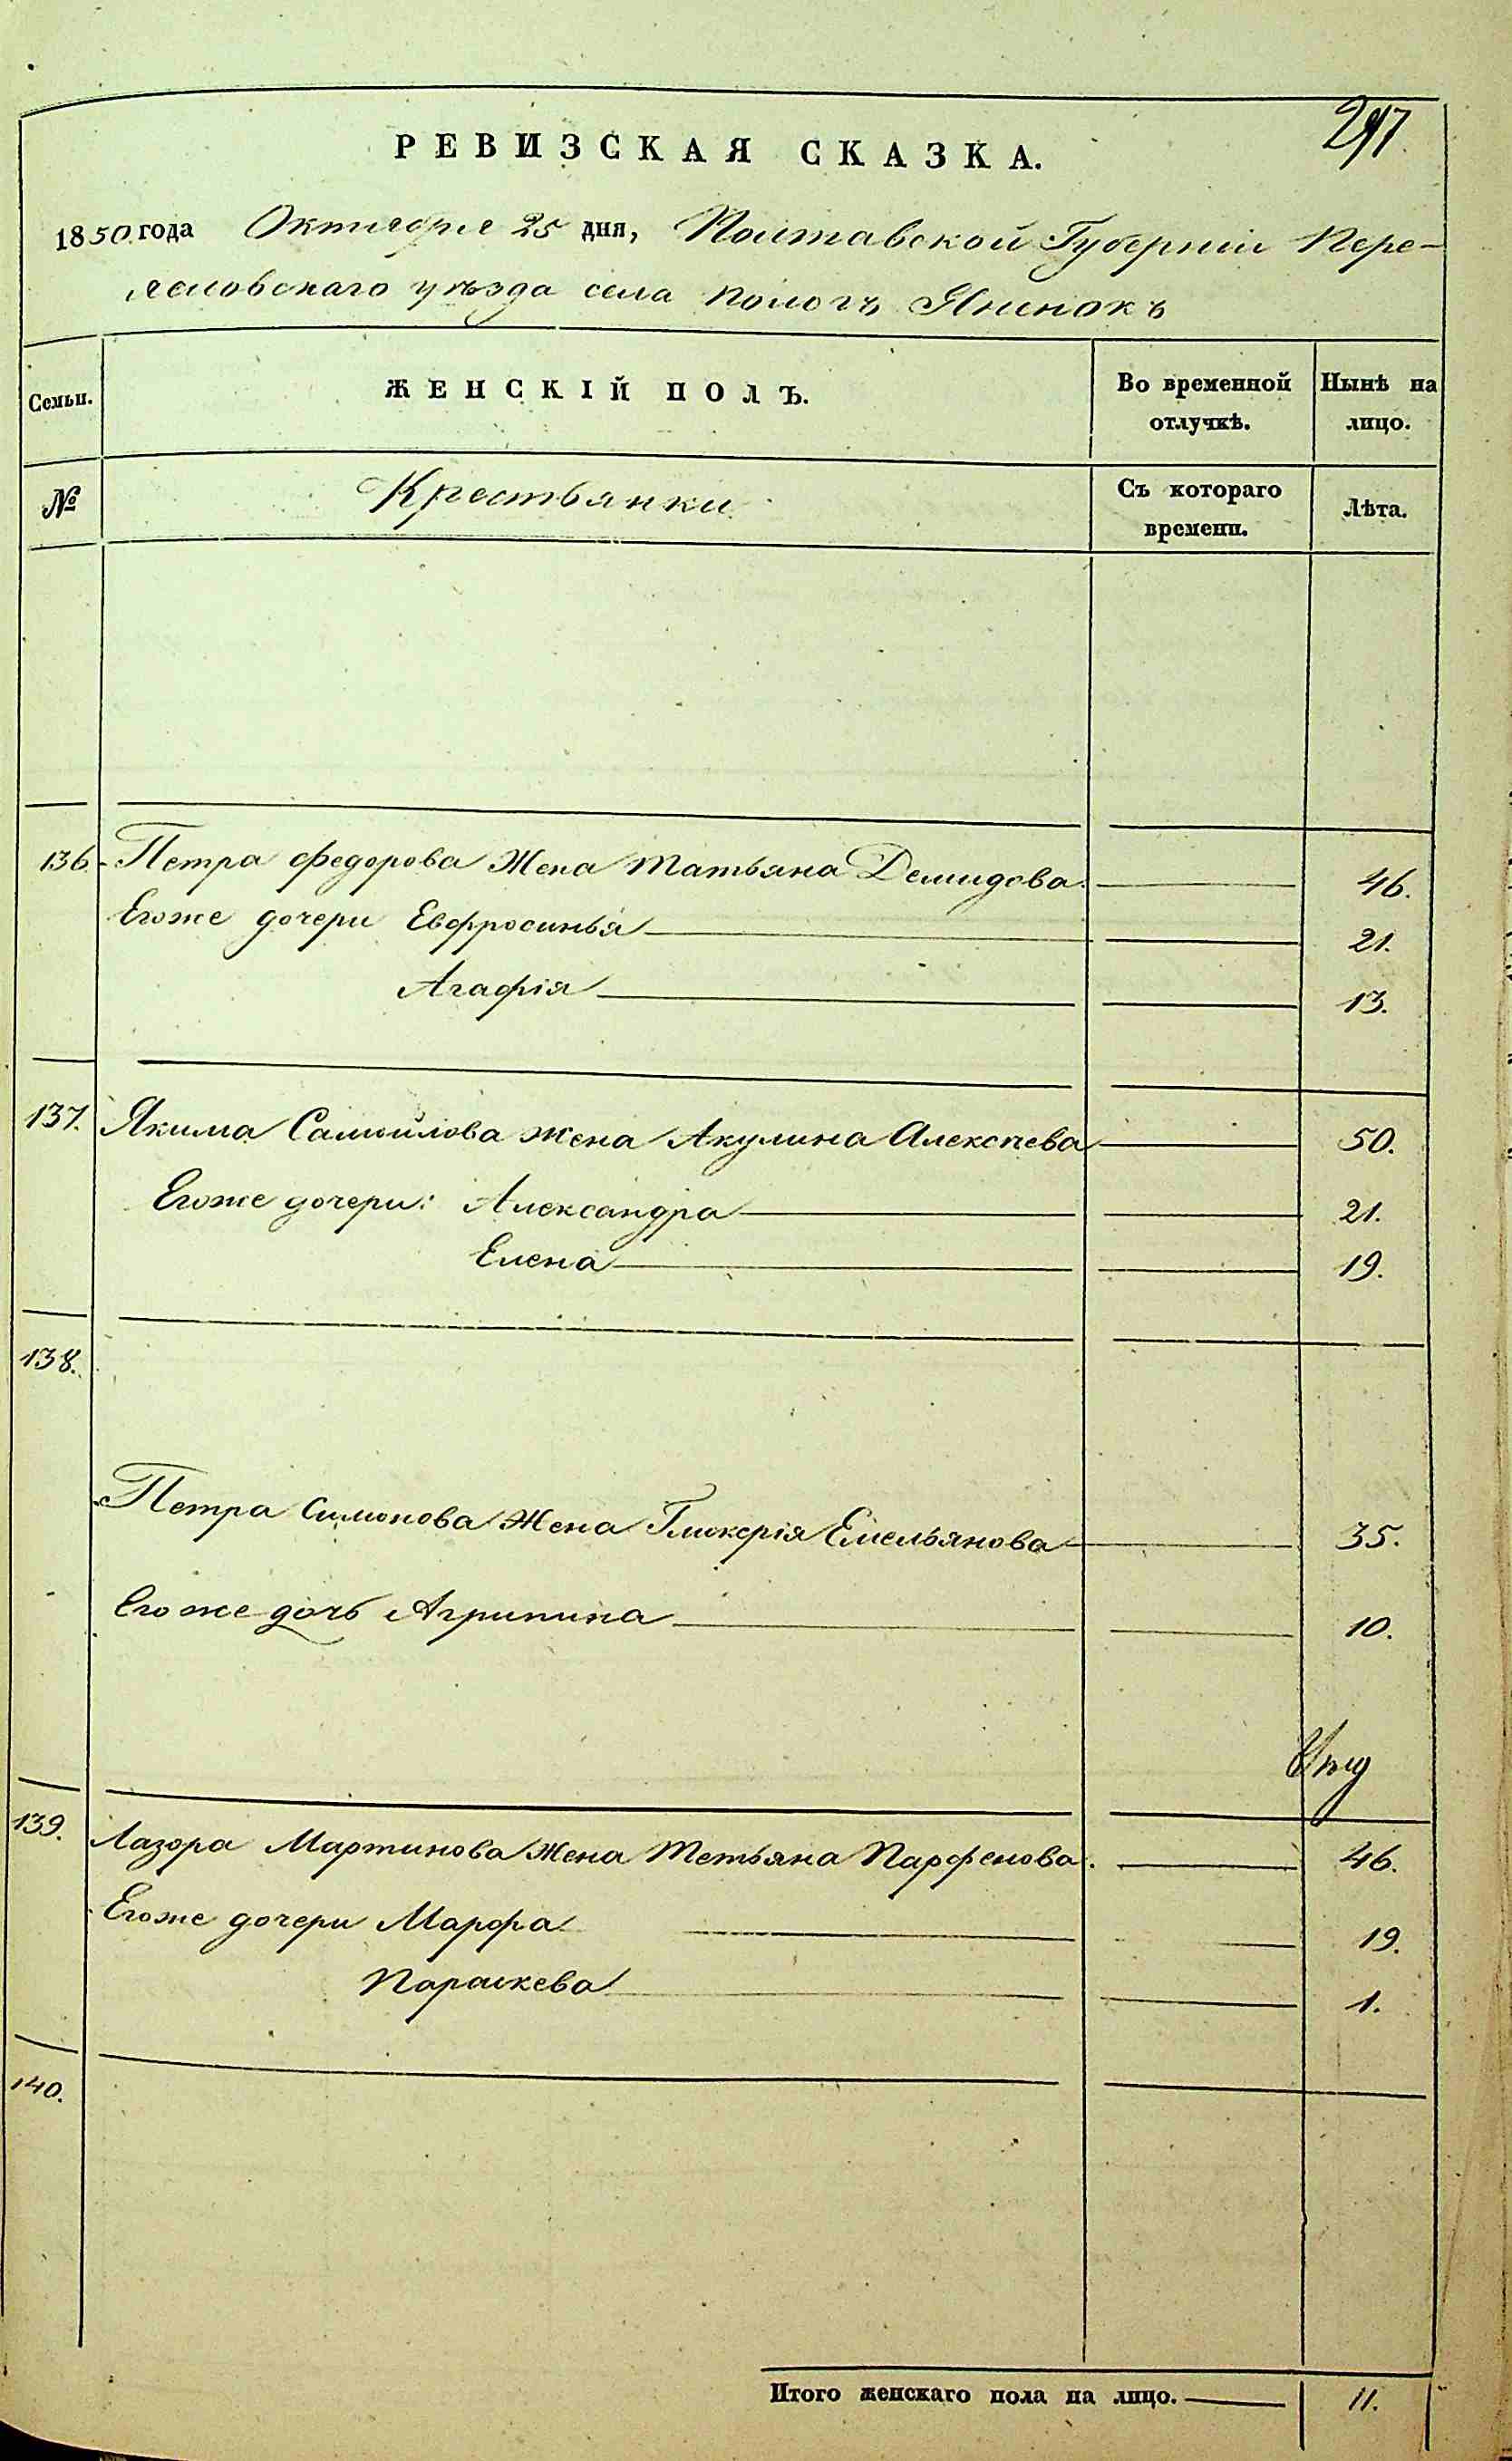 297.
РЕВИЗСКАЯ СКАЗКА.
1850 года Октября 25 дня, Полтавской Губерніи Пере-
яславскаго уѣзда села Пологъ Яненокъ
Семьи.
ЖЕНСКІЙ ПОЛЪ.
Во временной отлучкѣ.
Нынѣ на лицо.
№
Крестьянки
Съ котораго времени.
Лѣта.
136. Петра Федорова Жена Татьяна Демидова. 46.
Егоже дочери Евфросинья 21.
Агафія 13.
137. Якима Самойлова жена Акулина Алексѣева 50.
Егоже дочери: Александра 21.
Елена 19.
138.
Петра Симонова Жена Гликерія Емельянова 35.
Егоже дочь Агрипина 10.
139. Лазора Мартинова Жена Тетьяна Парфенова. 46.
Егоже дочери Марфа 19.
Параскева 1.
140.
Итого женскаго пола на лицо. 11.